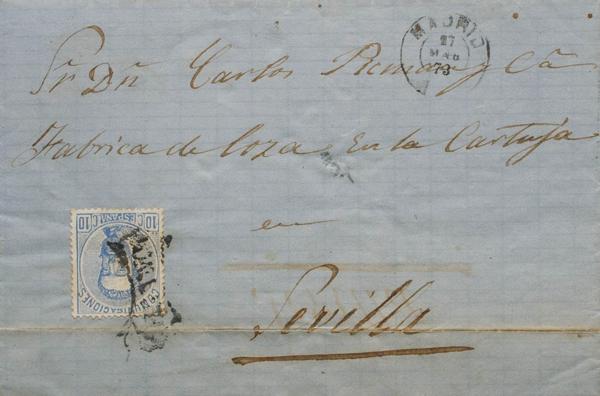 MADRID
27
MAR
73
Sr Dn Carlos Pickman y Cª
Fabrica de loza en la Cartuja
en
Sevilla
10 C. ESPAÑA C. 10
COMUNICACIONES